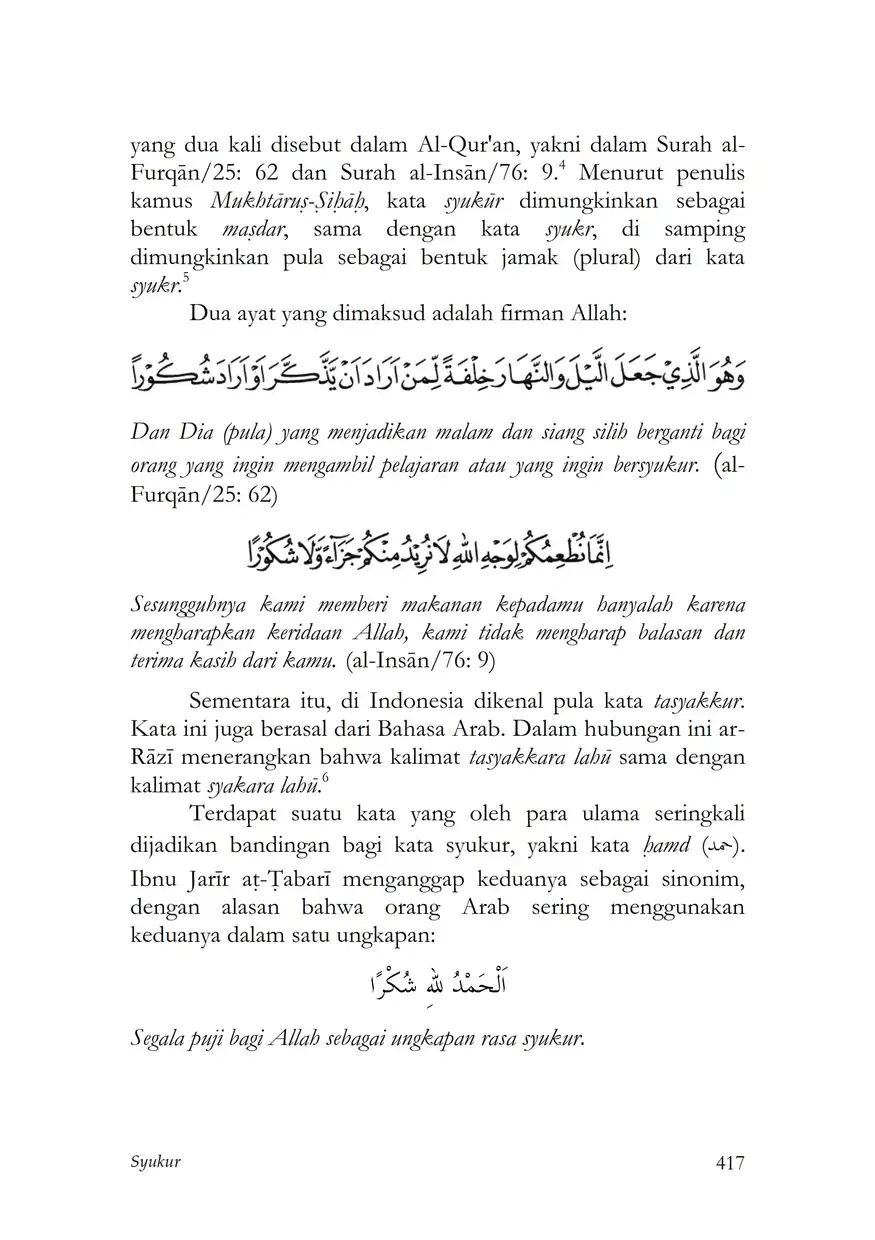 yang dua kali disebut dalam Al-Qur'an, yakni dalam Surah al-
Furqān/25: 62 dan Surah al-Insān/76: 9.4 Menurut penulis
kamus Mukhtāruṣ-Ṣiḥāḥ, kata syukūr dimungkinkan sebagai
bentuk maṣdar, sama dengan kata syukr, di samping
dimungkinkan pula sebagai bentuk jamak (plural) dari kata
syukr.5
Dua ayat yang dimaksud adalah firman Allah:
وَهُوَ الَّذِيْ جَعَلَ الَّيْلَ وَالنَّهَارَ خِلْفَةً لِّمَنْ اَرَادَ اَنْ يَّذَّكَّرَ اَوْ اَرَادَ شُكُوْرًا
Dan Dia (pula) yang menjadikan malam dan siang silih berganti bagi
orang yang ingin mengambil pelajaran atau yang ingin bersyukur. (al-
Furqān/25: 62)
اِنَّمَا نُطْعِمُكُمْ لِوَجْهِ اللهِ لَا نُرِيْدُ مِنْكُمْ جَزَاۤءً وَّلَا شُكُوْرًا
Sesungguhnya kami memberi makanan kepadamu hanyalah karena
mengharapkan keridaan Allah, kami tidak mengharap balasan dan
terima kasih dari kamu. (al-Insān/76: 9)
Sementara itu, di Indonesia dikenal pula kata tasyakkur.
Kata ini juga berasal dari Bahasa Arab. Dalam hubungan ini ar-
Rāzī menerangkan bahwa kalimat tasyakkara lahū sama dengan
kalimat syakara lahū.6
Terdapat suatu kata yang oleh para ulama seringkali
dijadikan bandingan bagi kata syukur, yakni kata ḥamd (حمد).
Ibnu Jarīr aṭ-Ṭabarī menganggap keduanya sebagai sinonim,
dengan alasan bahwa orang Arab sering menggunakan
keduanya dalam satu ungkapan:
اَلْحَمْدُ للهِ شُكْرًا
Segala puji bagi Allah sebagai ungkapan rasa syukur.
Syukur 417